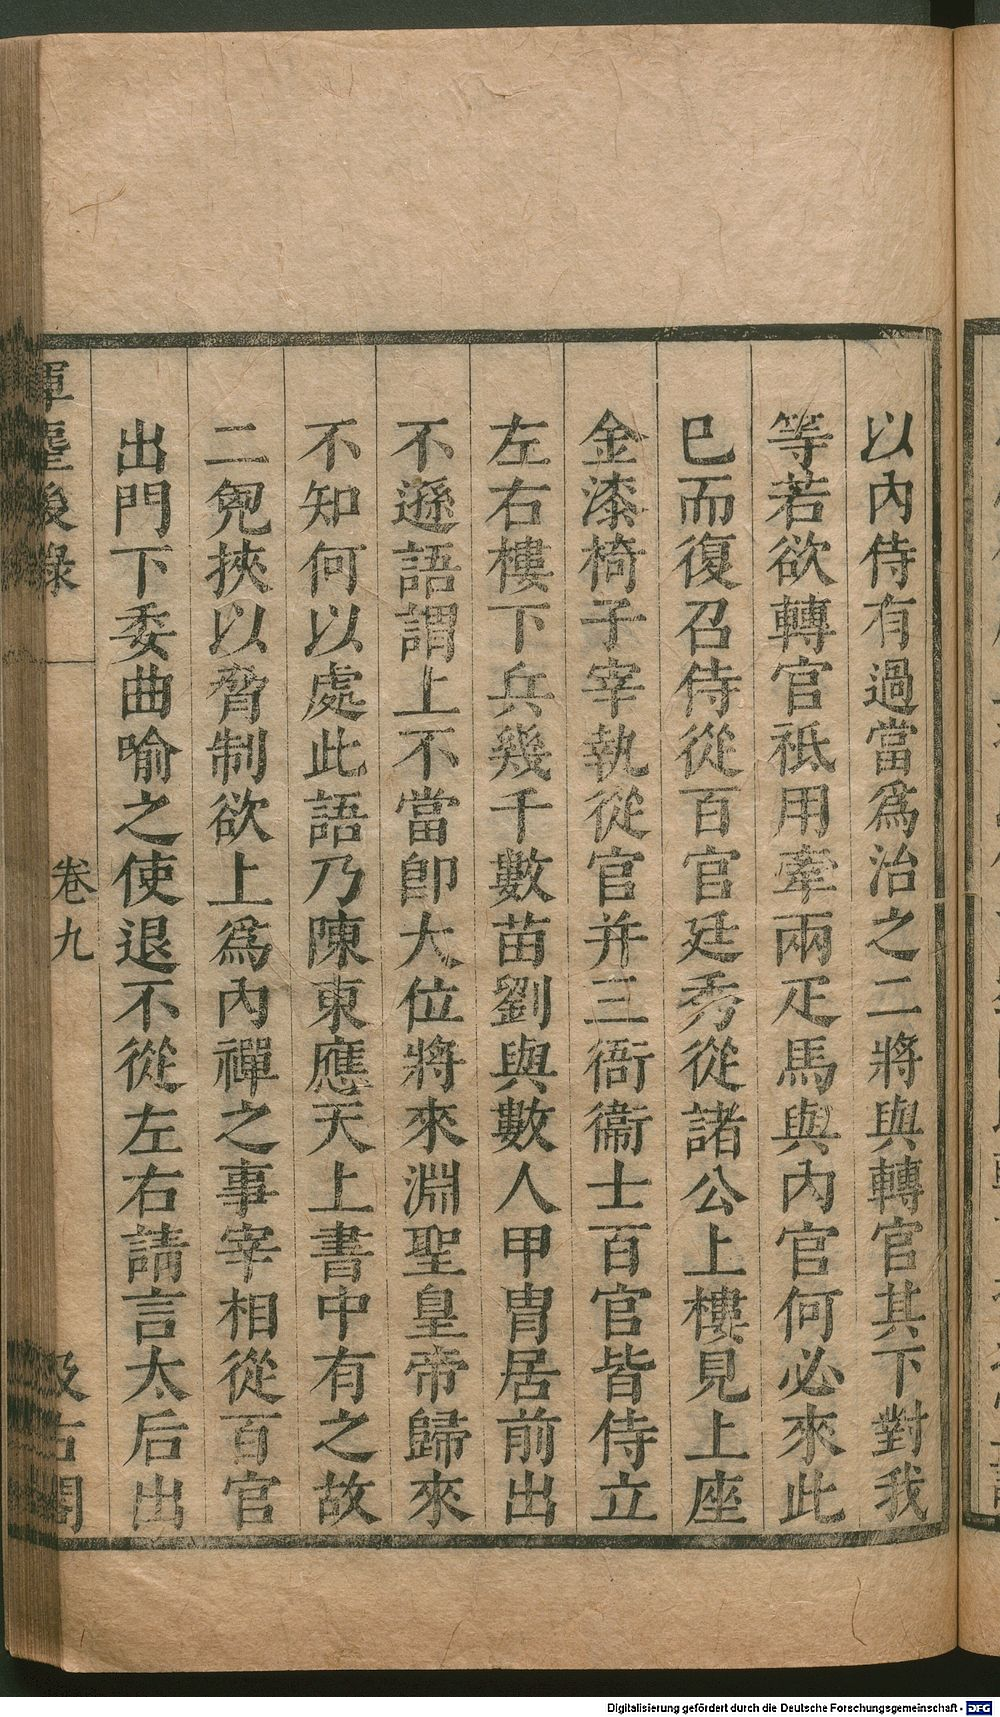 以內侍有過當爲治之二將與轉官其下對我
等若欲轉官祗用牽兩疋馬與內官何必來此
已而復召侍從百官廷秀從諸公上樓見上座
金漆椅子宰執從官并三衙衞士百官皆侍立
左右樓下兵幾千數苗劉與數人甲胄居前出
不遜語謂上不當卽大位將來淵聖皇帝歸來
不知何以處此語乃陳東應天上書中有之故
二兇挾以脅制欲上爲內禪之事宰相從百官
出門下委曲喻之使退不從左右請言太后出
揮麈後錄 卷九 汲古閣
Digitalisierung gefördert durch die Deutsche Forschungsgemeinschaft - DFG